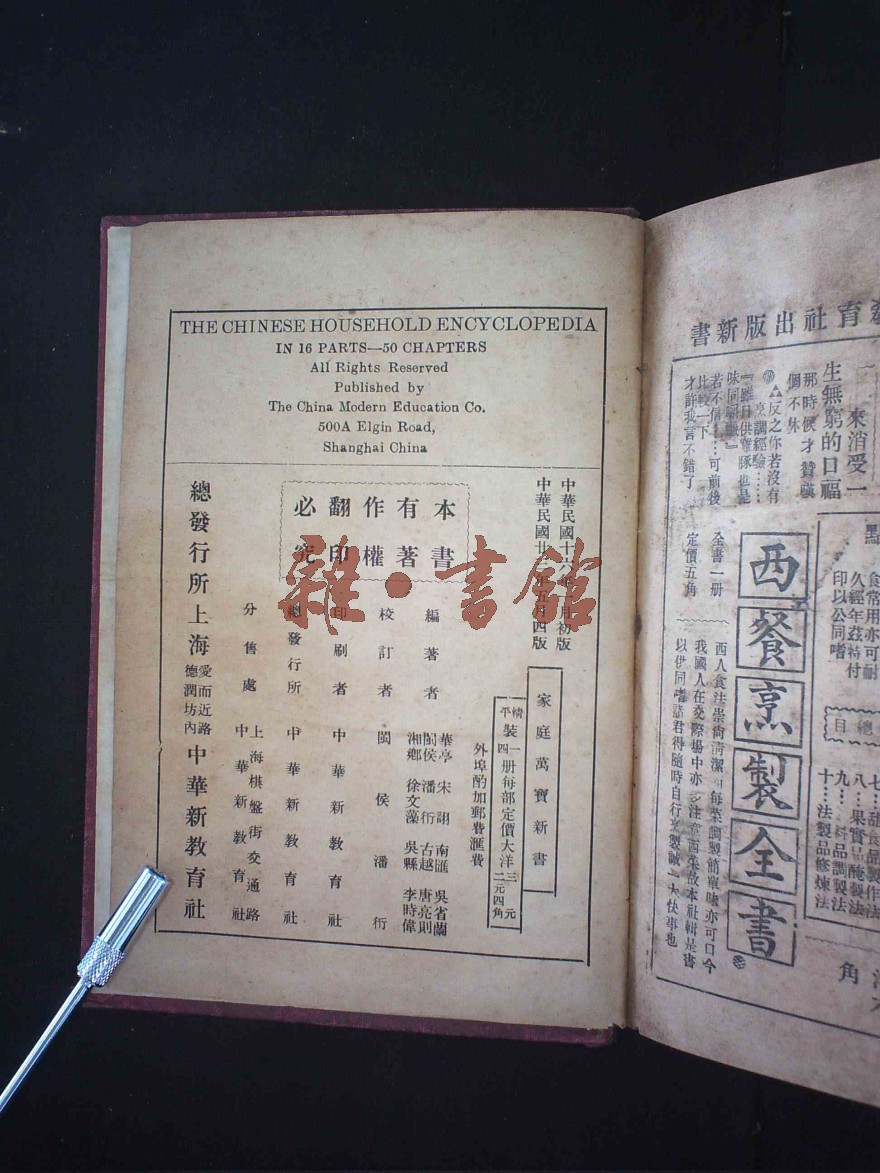 THE CHINESE HOUSEHOLD ENCYCLOPEDIA
IN 16 PARTS—50 CHAPTERS
All Rights Reserved
Published by
The China Modern Education Co.
500A Elgin Road,
Shanghai China
中華民國十六年 月初版
中華民國廿三年五月四版
家庭萬寶新書
精裝一册每部定價大洋三元
平裝四册每部定價大洋二元四角
外埠酌加郵費滙費
本書
有著
作權
翻印
必究
編著者
華亭 宋詡 南匯 吳省蘭
閩侯 潘衍 古越 唐亮則
湘鄉 徐文藻 吳縣 李時偉
校訂者 閩侯 潘衍
印刷者 中華新教育社
總發行所 中華新教育社
分售處 上海棋盤街交通路 中華新教育社
總發行所上海愛而近路德潤坊內中華新教育社
雜·書館
育社出版新書
來消受一
生無窮的口福
那時候才贊嘆
個不休
△反之你若沒有
烹調經驗……
『雖日供雞豚也是
味同嚼蠟』
若不信……可前後
比較一下
才許我言不錯了
全書一册
定價五角
西餐烹製全書
西人食法崇尚清潔 每菜調製簡單味亦可口今
我國人在交際場中亦多注意西菜故本社輯是書
以供同嗜諸君得隨時自行 製誠一大快事也
點
食常用亦可耐
久經年茲特付
印以公同嗜
總目
七…甜食品製作法
八…果實品醃製法
九… 品調製法
十…法製品修煉法
角